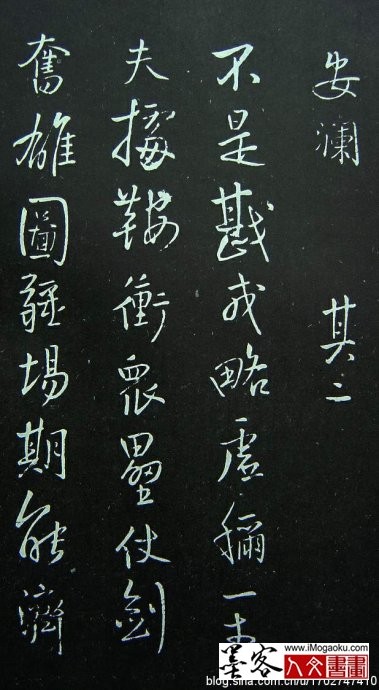 安瀾 其二
不是戡戎略虛稱一丈
夫據鞍衝眾壘仗劍
奮雄圖疆場期能濟
墨客
www.iMogaoku.com
人文書畫
blog.sina.com.cn/u/1702747410